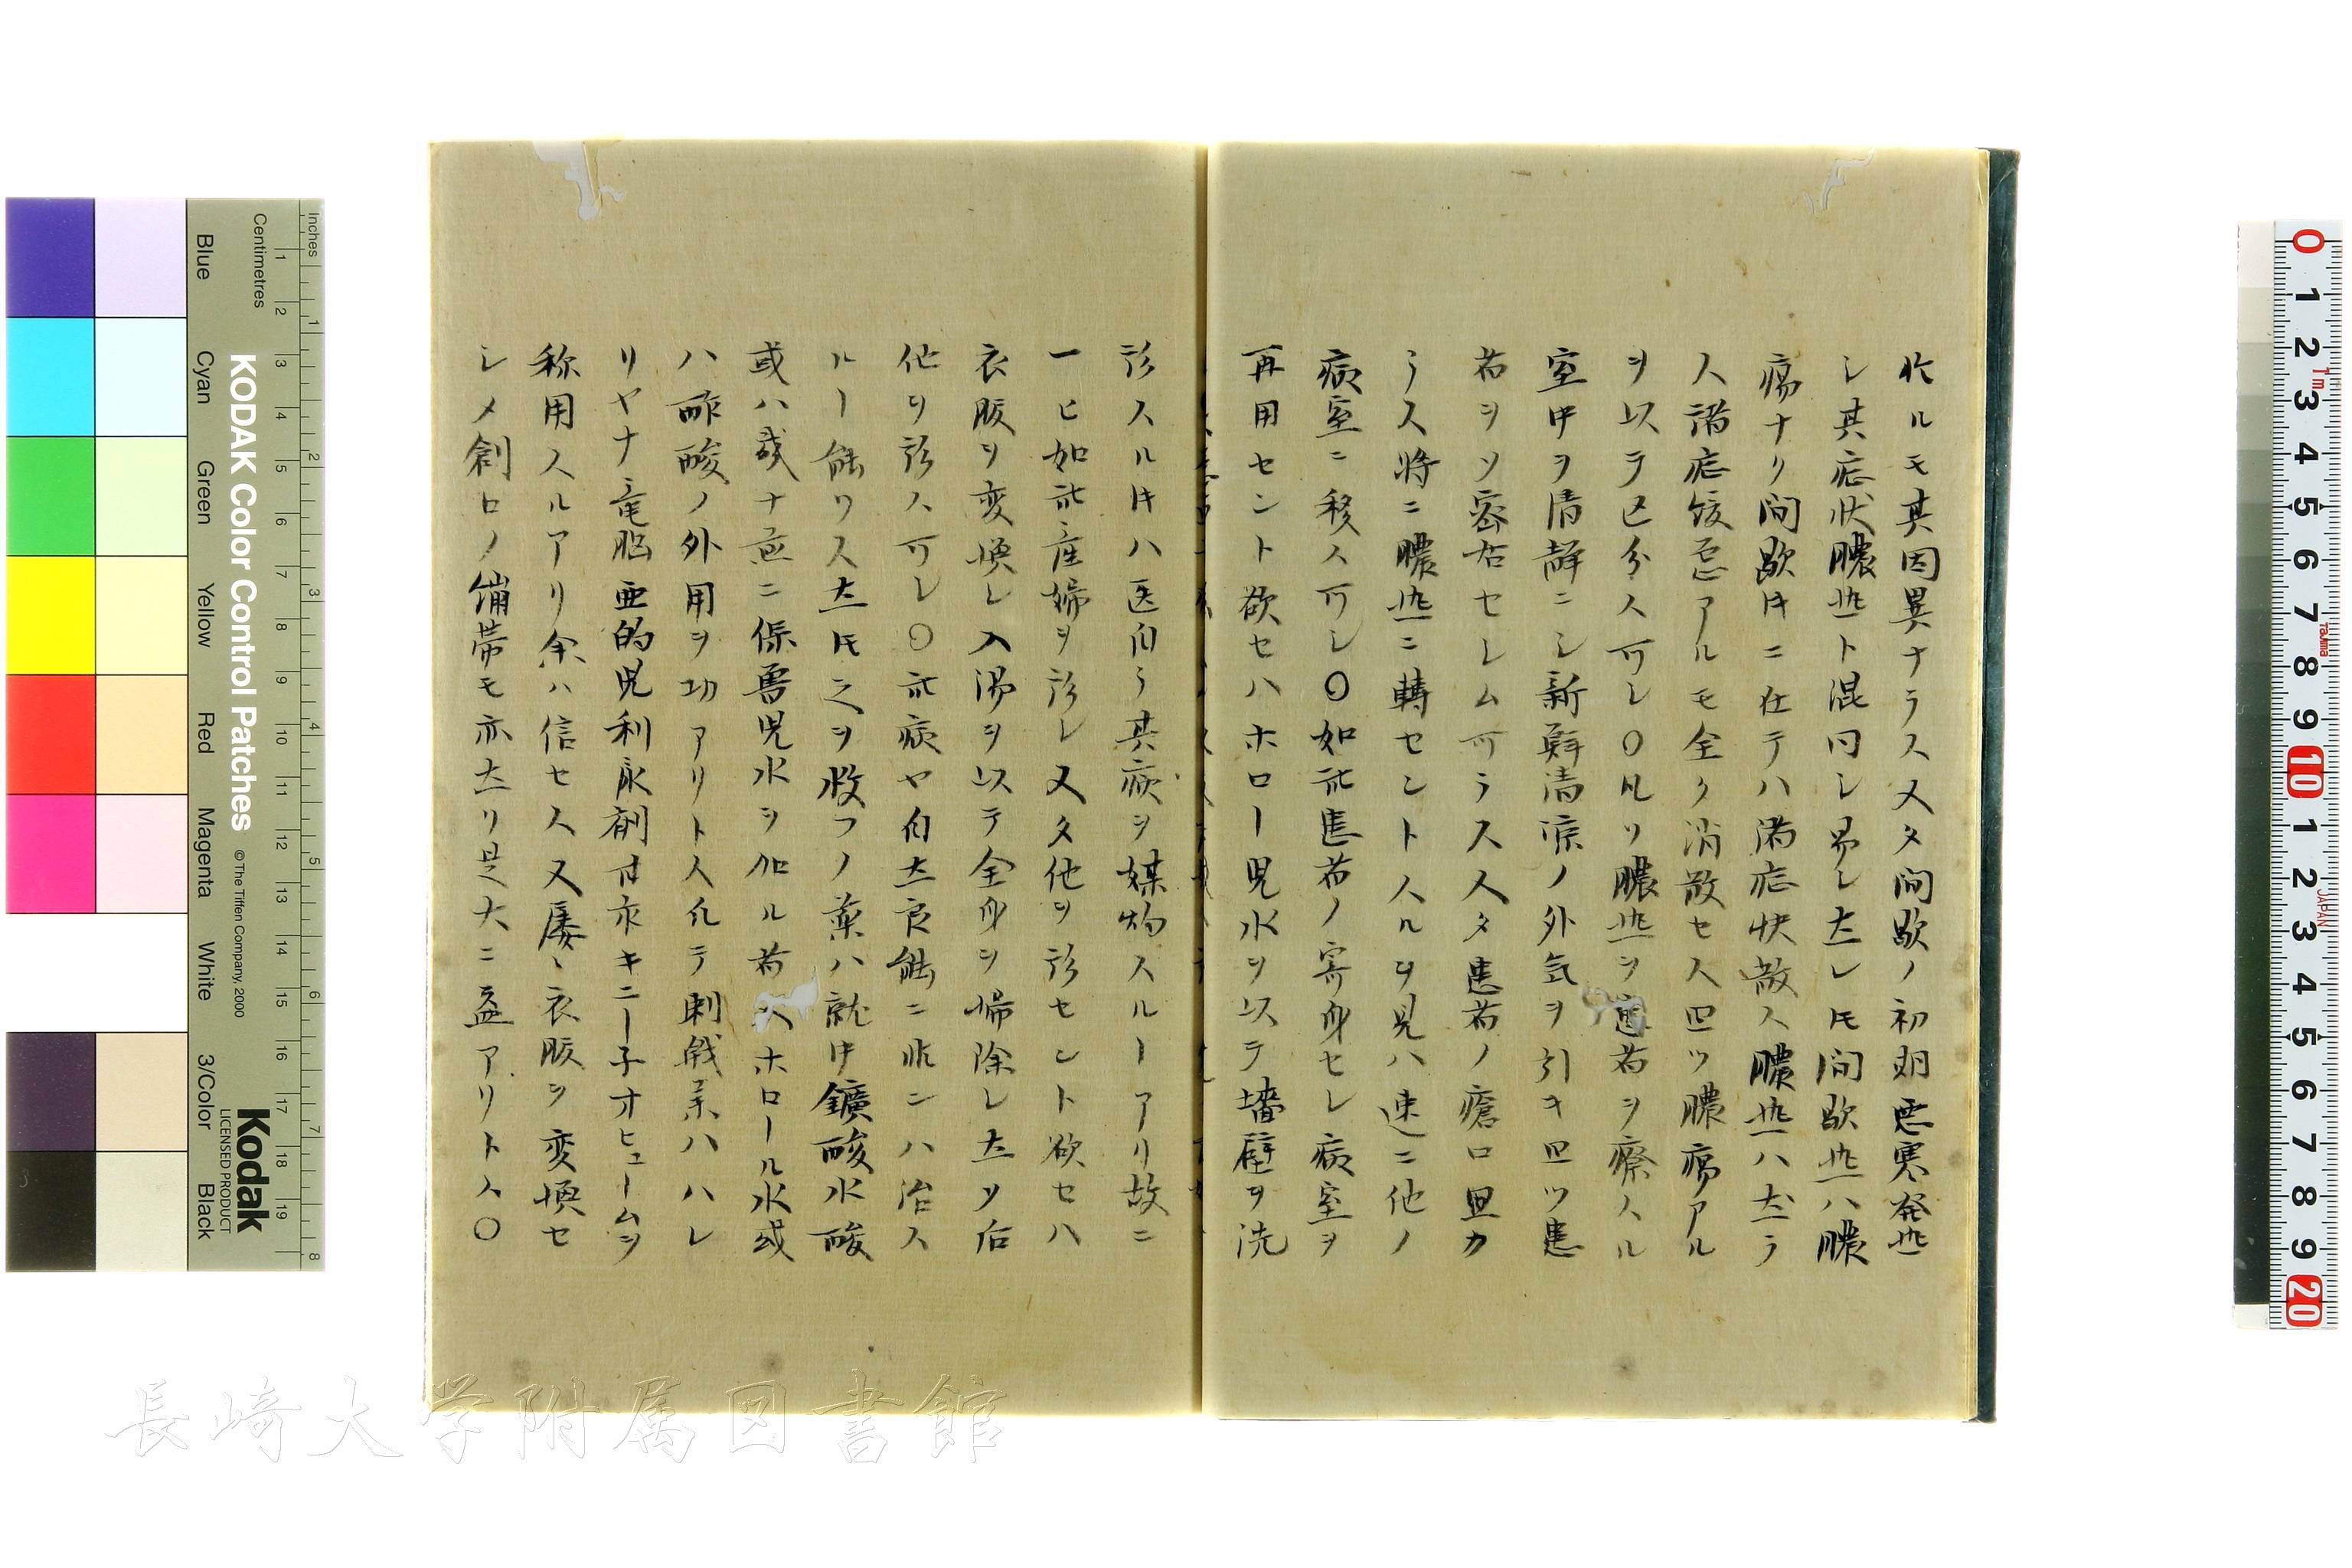 於ルモ其因異ナラス又タ間歇ノ初期悪寒発熱
シ其症状膿熱ト混同シ易シ然レ𪜈間歇熱ハ膿
瘍ナク間歇𪜈ニ在テハ諸症快散ス膿熱ハ然ラ
ス諸症緩急アルモ全ク消散セス且ツ膿瘍アル
ヲ以テ区分ス可シ〇凡ソ膿熱ノ患者ヲ療スル
室中ヲ清静ニシ新鮮清凉ノ外気ヲ引キ且ツ患
者ヲソ密居セシム可ラス又タ患者ノ瘡口且カ
ラス将ニ膿熱ニ轉セントスルヲ見ハ速ニ他ノ
病室ニ移ス可シ〇如此患者ノ寄身セシ病室ヲ
再用セント欲セハホロー児水ヲ以テ墻壁ヲ洗
診スルキハ医自ラ其病ヲ媒物スルーアリ故ニ
一ヒ如此産婦ヲ診シ又タ他ヲ診セント欲セハ
衣服ヲ変換シ入湯ヲ以テ全身ヲ掃除シ然ソ后
他ヲ診ス可シ〇此病ヤ自然良能ニ非ンハ治ス
ルー能ワス然𪜈之ヲ救フノ薬ハ就中鑛酸水酸
或ハ幾ナ尼ニ保魯児水ヲ加ル者 ホロール水或
ハ酢酸ノ外用ヲ功アリトス凡テ刺戟薬ハハレ
リヤナ竜脳亜的児利尿剤モ亦キニー子オヒュームヲ
称用スルアリ余ハ信セス又屡々衣服ヲ変換セ
シメ創口ノ繃帯モ亦然リ是大ニ益アリトス〇
Inches
Centimetres
KODAK Color Control Patches
© The Tiffen Company, 2000
Kodak
LICENSED PRODUCT
Blue
Cyan
Green
Yellow
Red
Magenta
White
3/Color
Black
長崎大学附属図書館